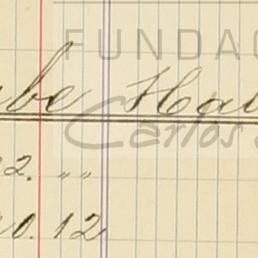 FUNDAC
be Hal
Carlos
2. " "
0. 12